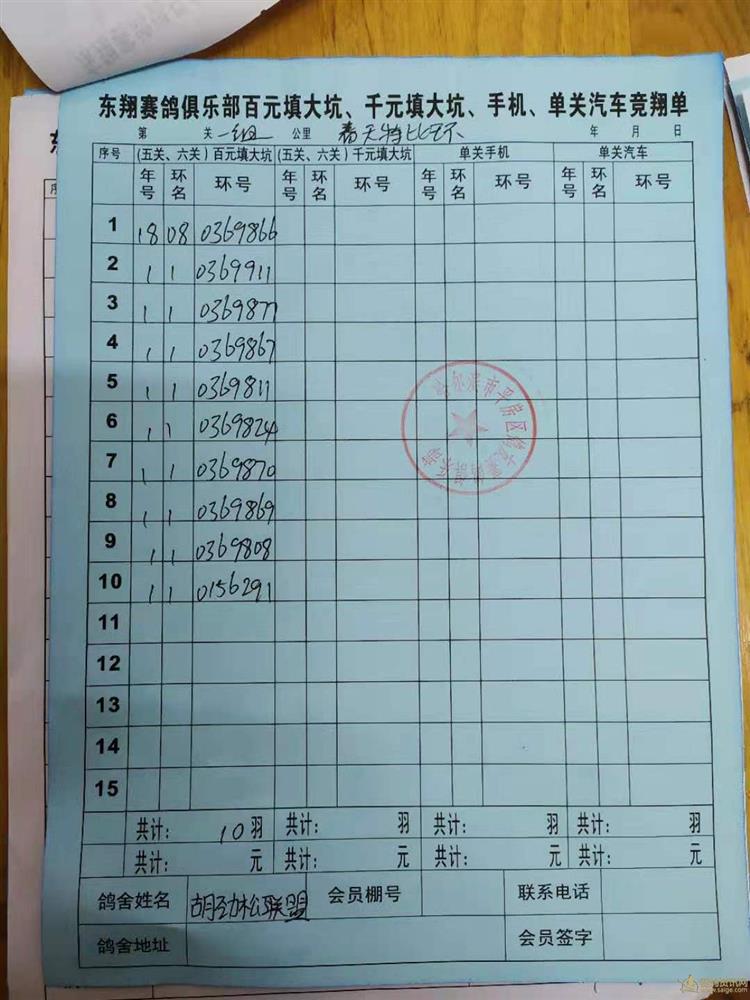 东翔赛鸽俱乐部百元填大坑、千元填大坑、手机、单关汽车竞翔单
第 关 一组 公里 春天特比环 年 月 日
序号 (五关、六关)百元填大坑 (五关、六关)千元填大坑 单关手机 单关汽车
年号 环名 环号 年号 环名 环号 年号 环名 环号 年号 环名 环号
1 18 08 0369866
2 1 1 0369911
3 1 1 0369877
4 1 1 0369867
5 1 1 0369811
6 1 1 0369824
7 1 1 0369870
8 1 1 0369869
9 1 1 0369808
10 1 1 0156291
11
12
13
14
15
共计: 10羽 共计: 羽 共计: 羽 共计: 羽
共计: 元 共计: 元 共计: 元 共计: 元
鸽舍姓名 胡劲松联盟 会员棚号 联系电话
鸽舍地址 会员签字
www.saige.com